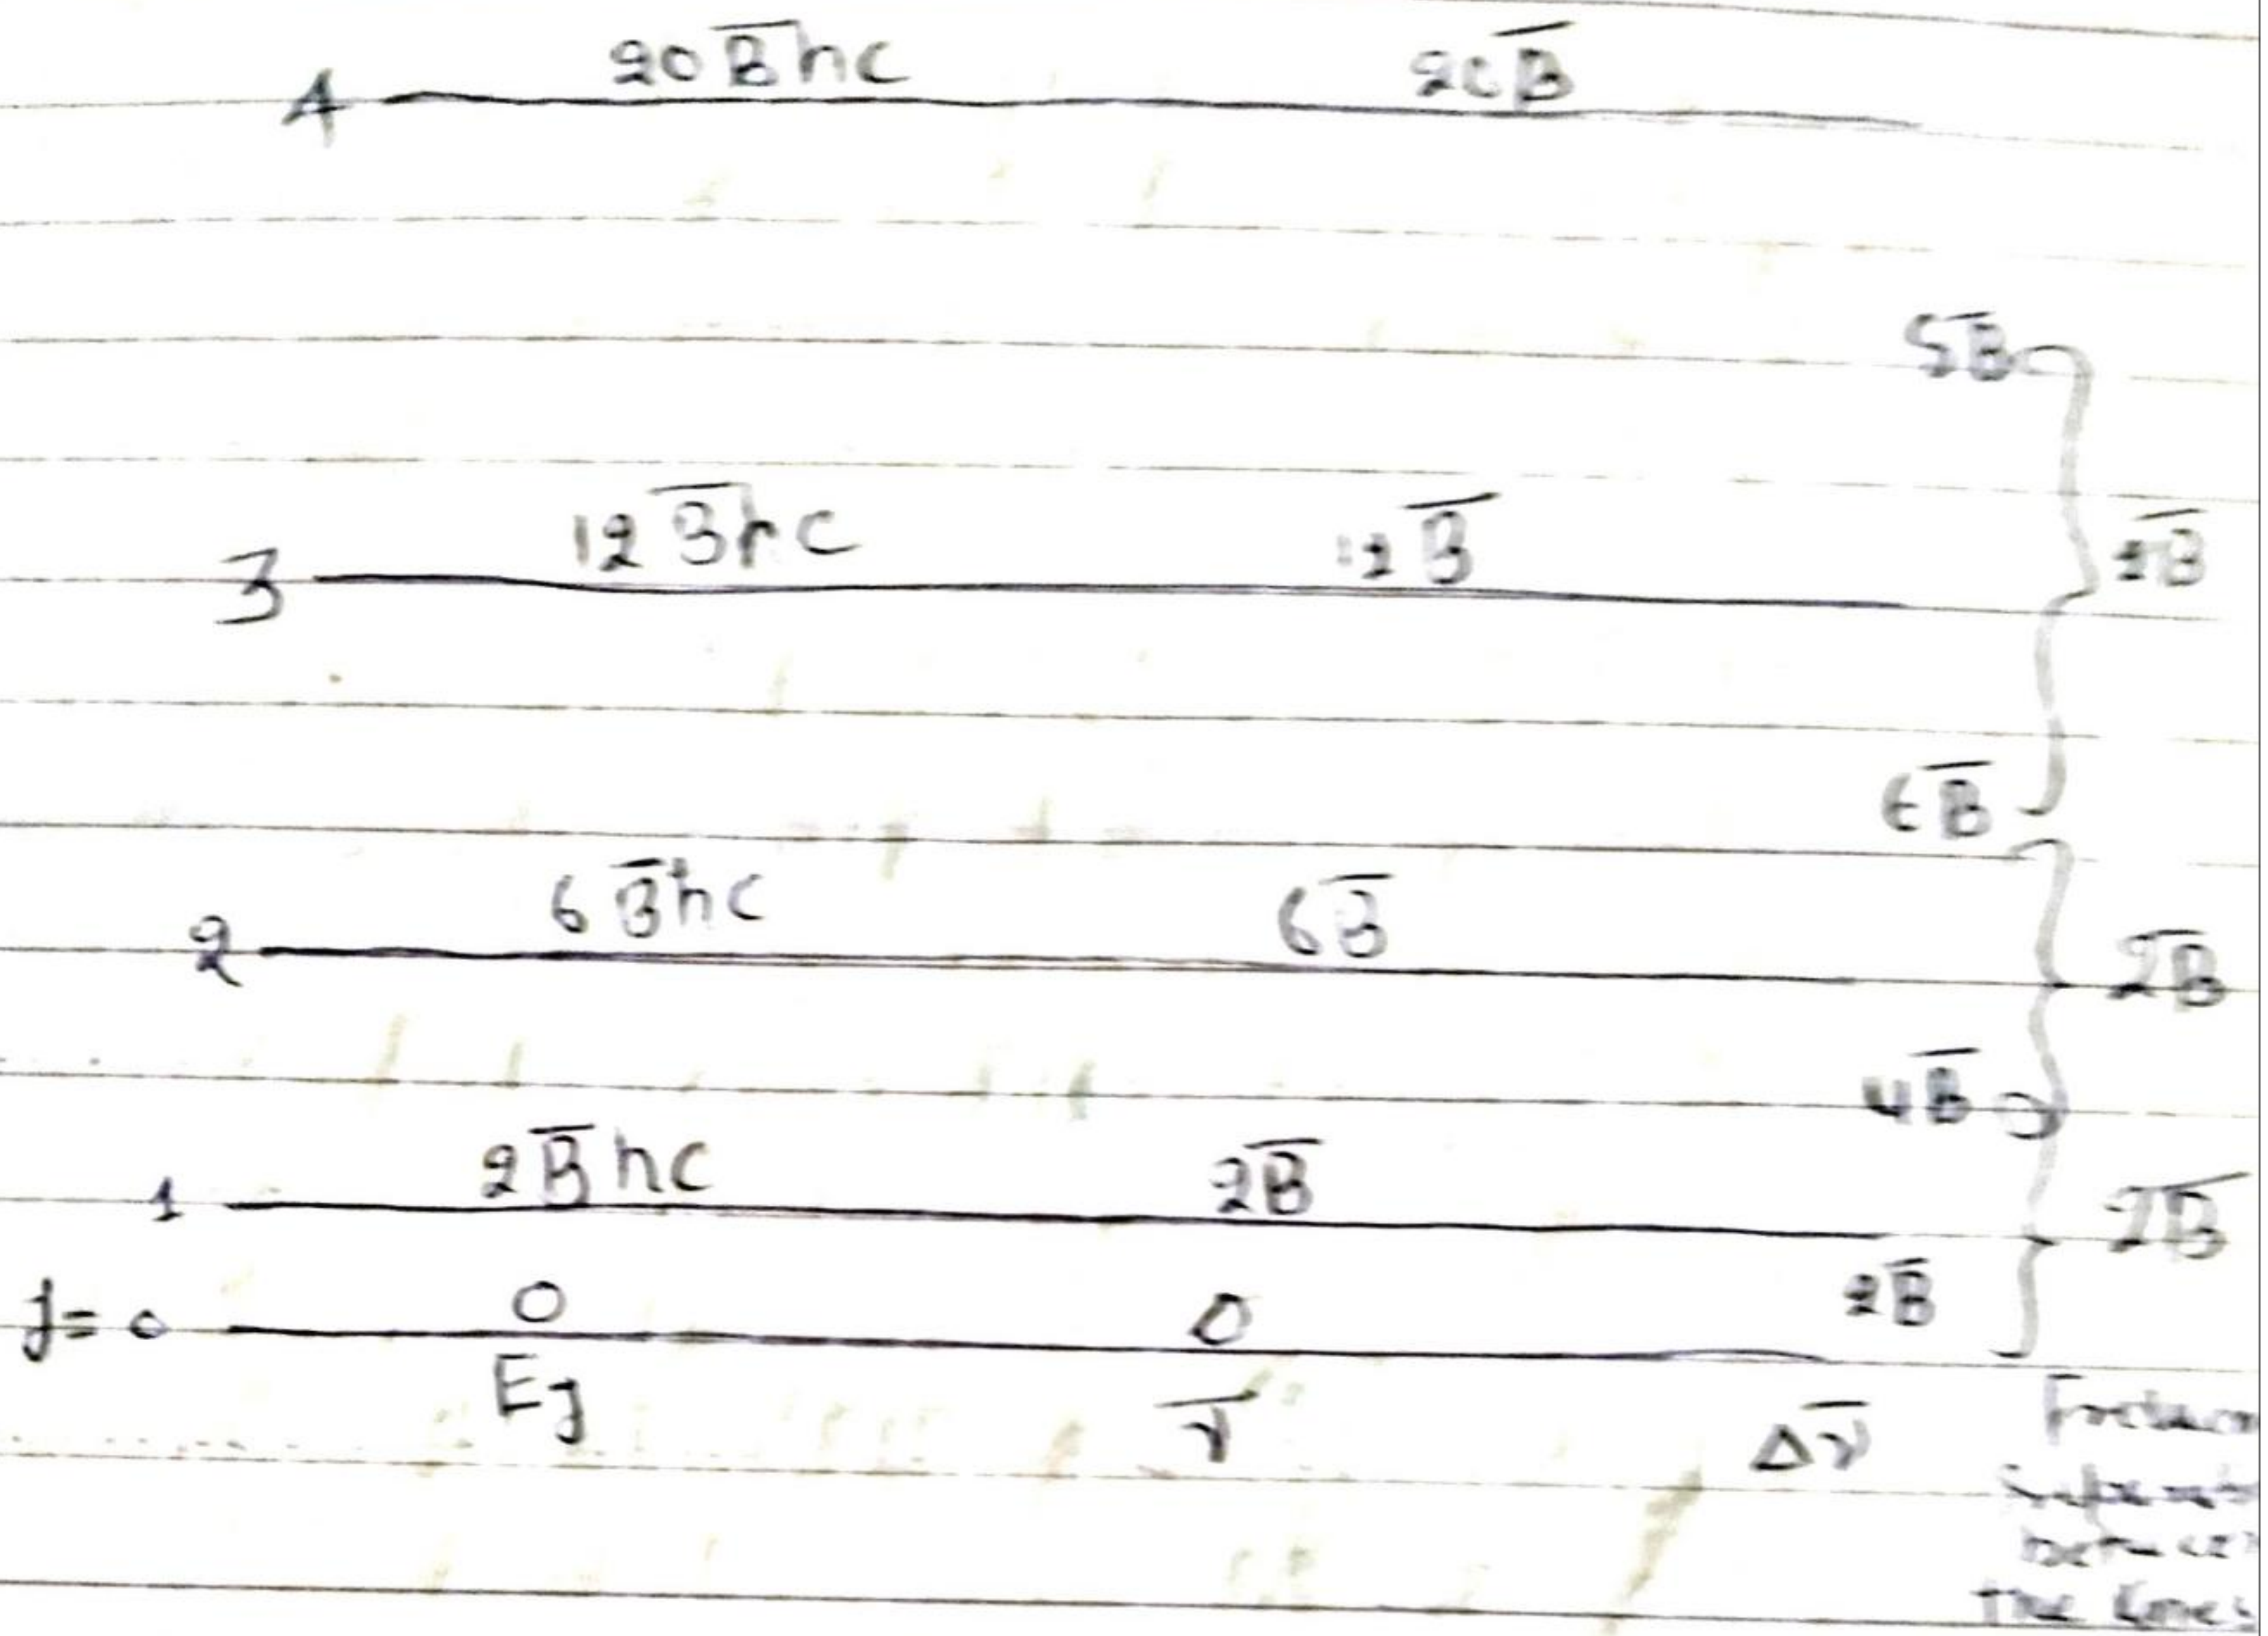 4 20B̅hc 20B̅
5B̅
3 12B̅hc 12B̅ 2B̅
6B̅
2 6B̅hc 6B̅ 2B̅
4B̅
1 2B̅hc 2B̅ 2B̅
J= 0 0 0 2B̅
EJ ν̅ Δν̅
between
the lines